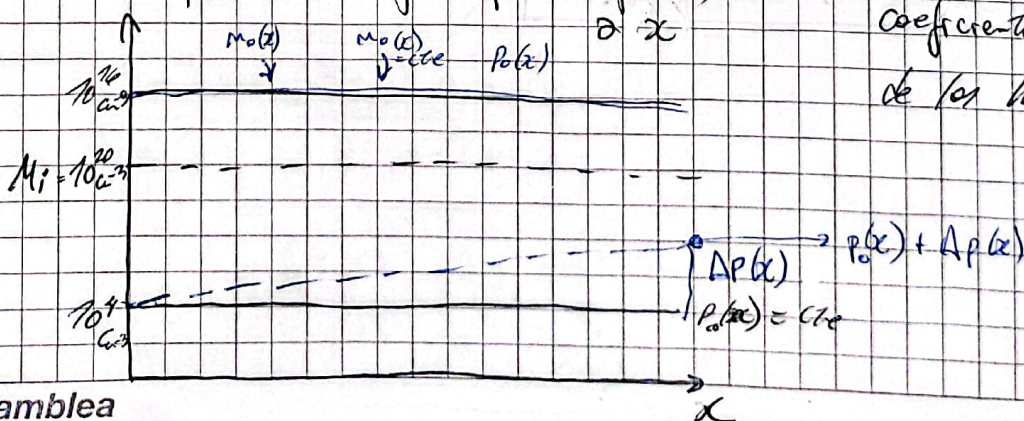 ∂ x
coeficient
de los
n₀(x)
n₀(x) = cte
p₀(x)
10¹⁶ cm⁻³
nᵢ = 10²⁰ cm⁻³
p₀(x) + Δp(x)
Δp(x)
10⁴ cm⁻³
p₀(x) = cte
x
amblea